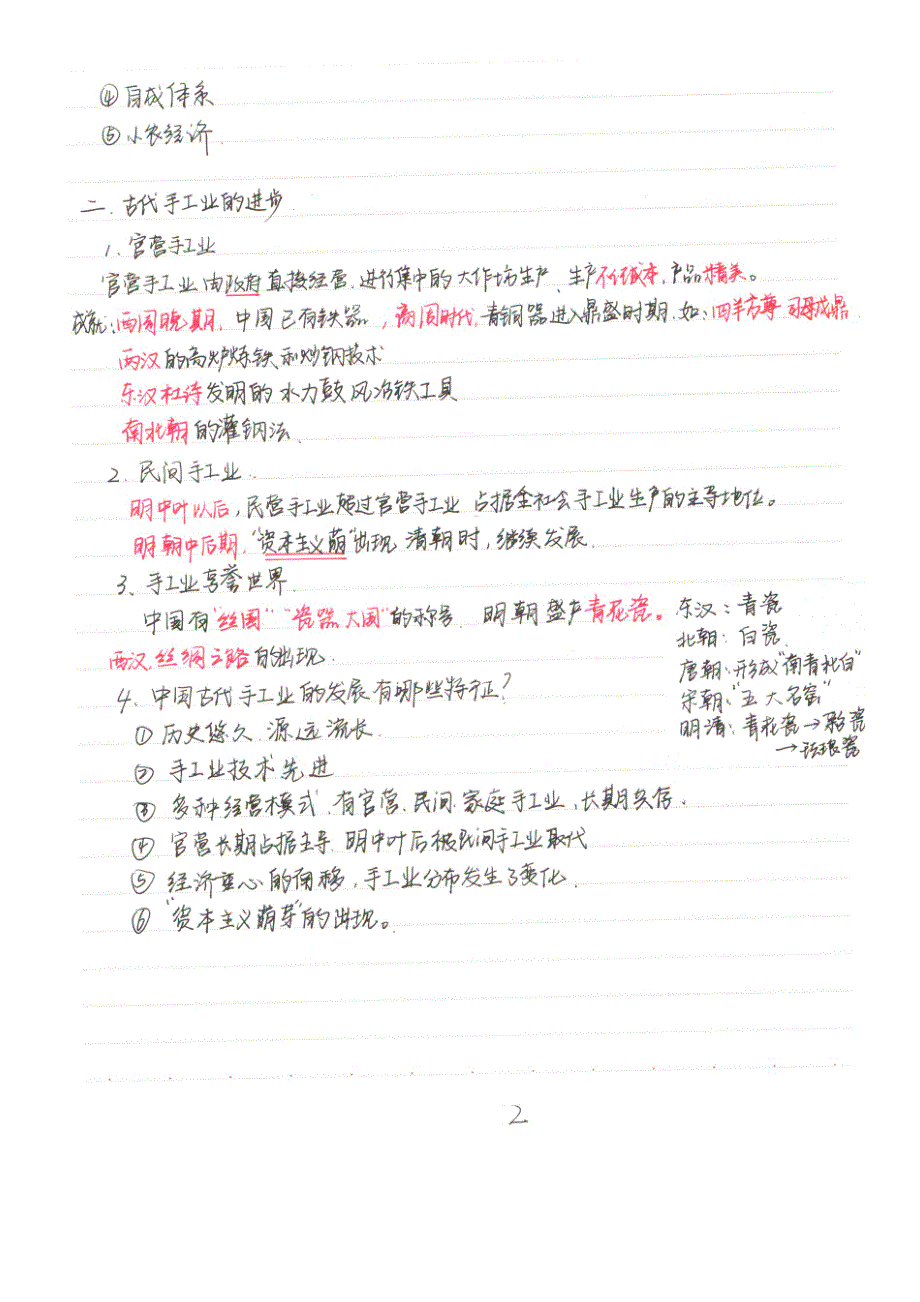 ④自成体系
⑤小农经济
二.古代手工业的进步
1.官营手工业
官营手工业由政府直接经营.进行集中的大作坊生产、生产不计成本,产品精美。
成就:西周晚期,中国已有铁器,商周时代,青铜器进入鼎盛时期.如:四羊方尊 司母戊鼎
两汉的高炉炼铁和炒钢技术
东汉杜诗发明的水力鼓风冶铁工具
南北朝的灌钢法
2.民间手工业.
明中叶以后,民营手工业超过官营手工业 占据全社会手工业生产的主导地位。
明朝中后期,“资本主义萌”出现 清朝时,继续发展.
3、手工业享誉世界
中国有“丝国”“瓷器大国”的称号 明朝盛产青花瓷。
两汉,丝绸之路的出现.
东汉:青瓷
北朝:白瓷
唐朝:形成“南青北白”
宋朝:“五大名窑”
明清:青花瓷→彩瓷
→珐琅瓷
4、中国古代手工业的发展有哪些特征?
①历史悠久 源远流长
②手工业技术先进
③多种经营模式,有官营.民间.家庭手工业,长期共存.
④官营长期占据主导 明中叶后被民间手工业取代
⑤经济重心的南移,手工业分布发生了变化
⑥“资本主义萌芽”的出现。
2